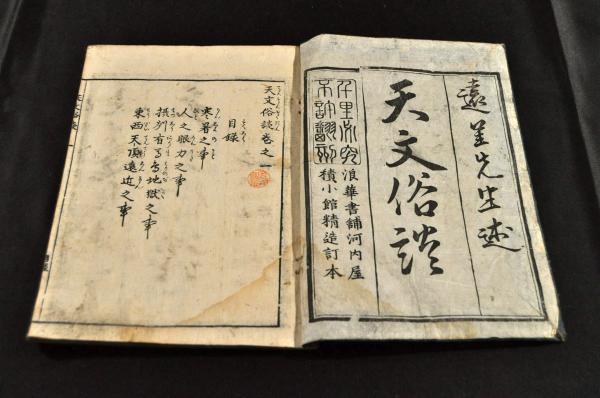 先生述
天文俗談
千里必究
浪華書舗河内屋
不許翻刻
積小館精造訂本
天文俗談巻之一
目録
寒暑之事
人之眼力之事
摂州有馬地獄之事
東西天頂遠近之事